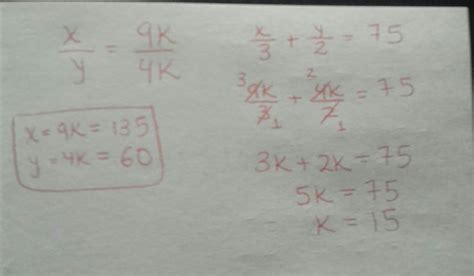 x/y = 9k/4k
x = 9k = 135
y = 4k = 60
x/3 + y/2 = 75
³9k/3₁ + ²4k/2₁ = 75
3k + 2k = 75
5k = 75
k = 15